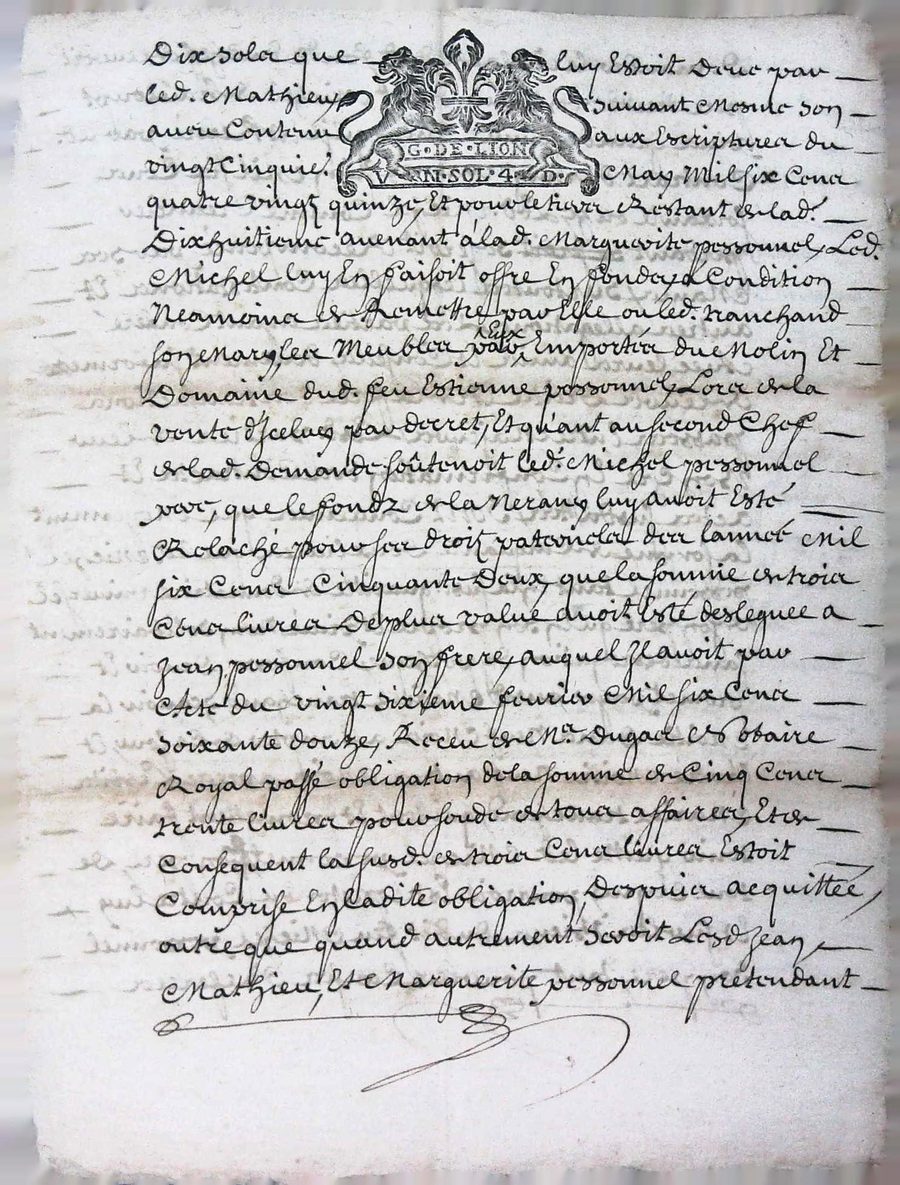 Dix sols que luy Estoit Deue par
led. Mathieu suivant Mesme son
aveu Contenu aux Escriptures du
G·DE·LION
V N·SOL·4·D·
vingt Cinquie. May Mil six Cens
quatre vingt quinze, Et pour le tiers Restant de lad.
Dixhuitieme avenant à lad. Marguerite pessonnel, Led.
Michel luy En faisoit offre En fondz, a Condition
Neamoins de Remettre par Elle ou led. tranchand
son Mary, les Meubles par Eux Emportés du Molin Et
Domaine dud. feu Estienne pessonnel, Lors de la
vente d'Jcelluy par decret, Et quant au second Chef
de lad. Demande soûtenoit led. Michel pessonnel
pere, que le fondz de la Neraux luy avoit Esté
Relaché pour ses droitz paternels des lannée Mil
six Cens Cinquante Deux, que la somme de trois
Cens livres De plus value avoit Esté desleguee a
Jean pessonnel son frere, auquel Jl avoit par
Acte du vingt sixieme fevrier Mil six Cens
soixante douze, Receu de Me. Dugas Notaire
Royal passé obligation de la somme de Cinq Cens
trente livres pour soude de tous affaires, Et de
Consequent la susd. de trois Cens livres Estoit
Comprise En ladite obligation, Despuis acquittée,
outre que quand autrement seroit Lesd Jean,
Mathieu, Et Marguerite pessonnel pretendant